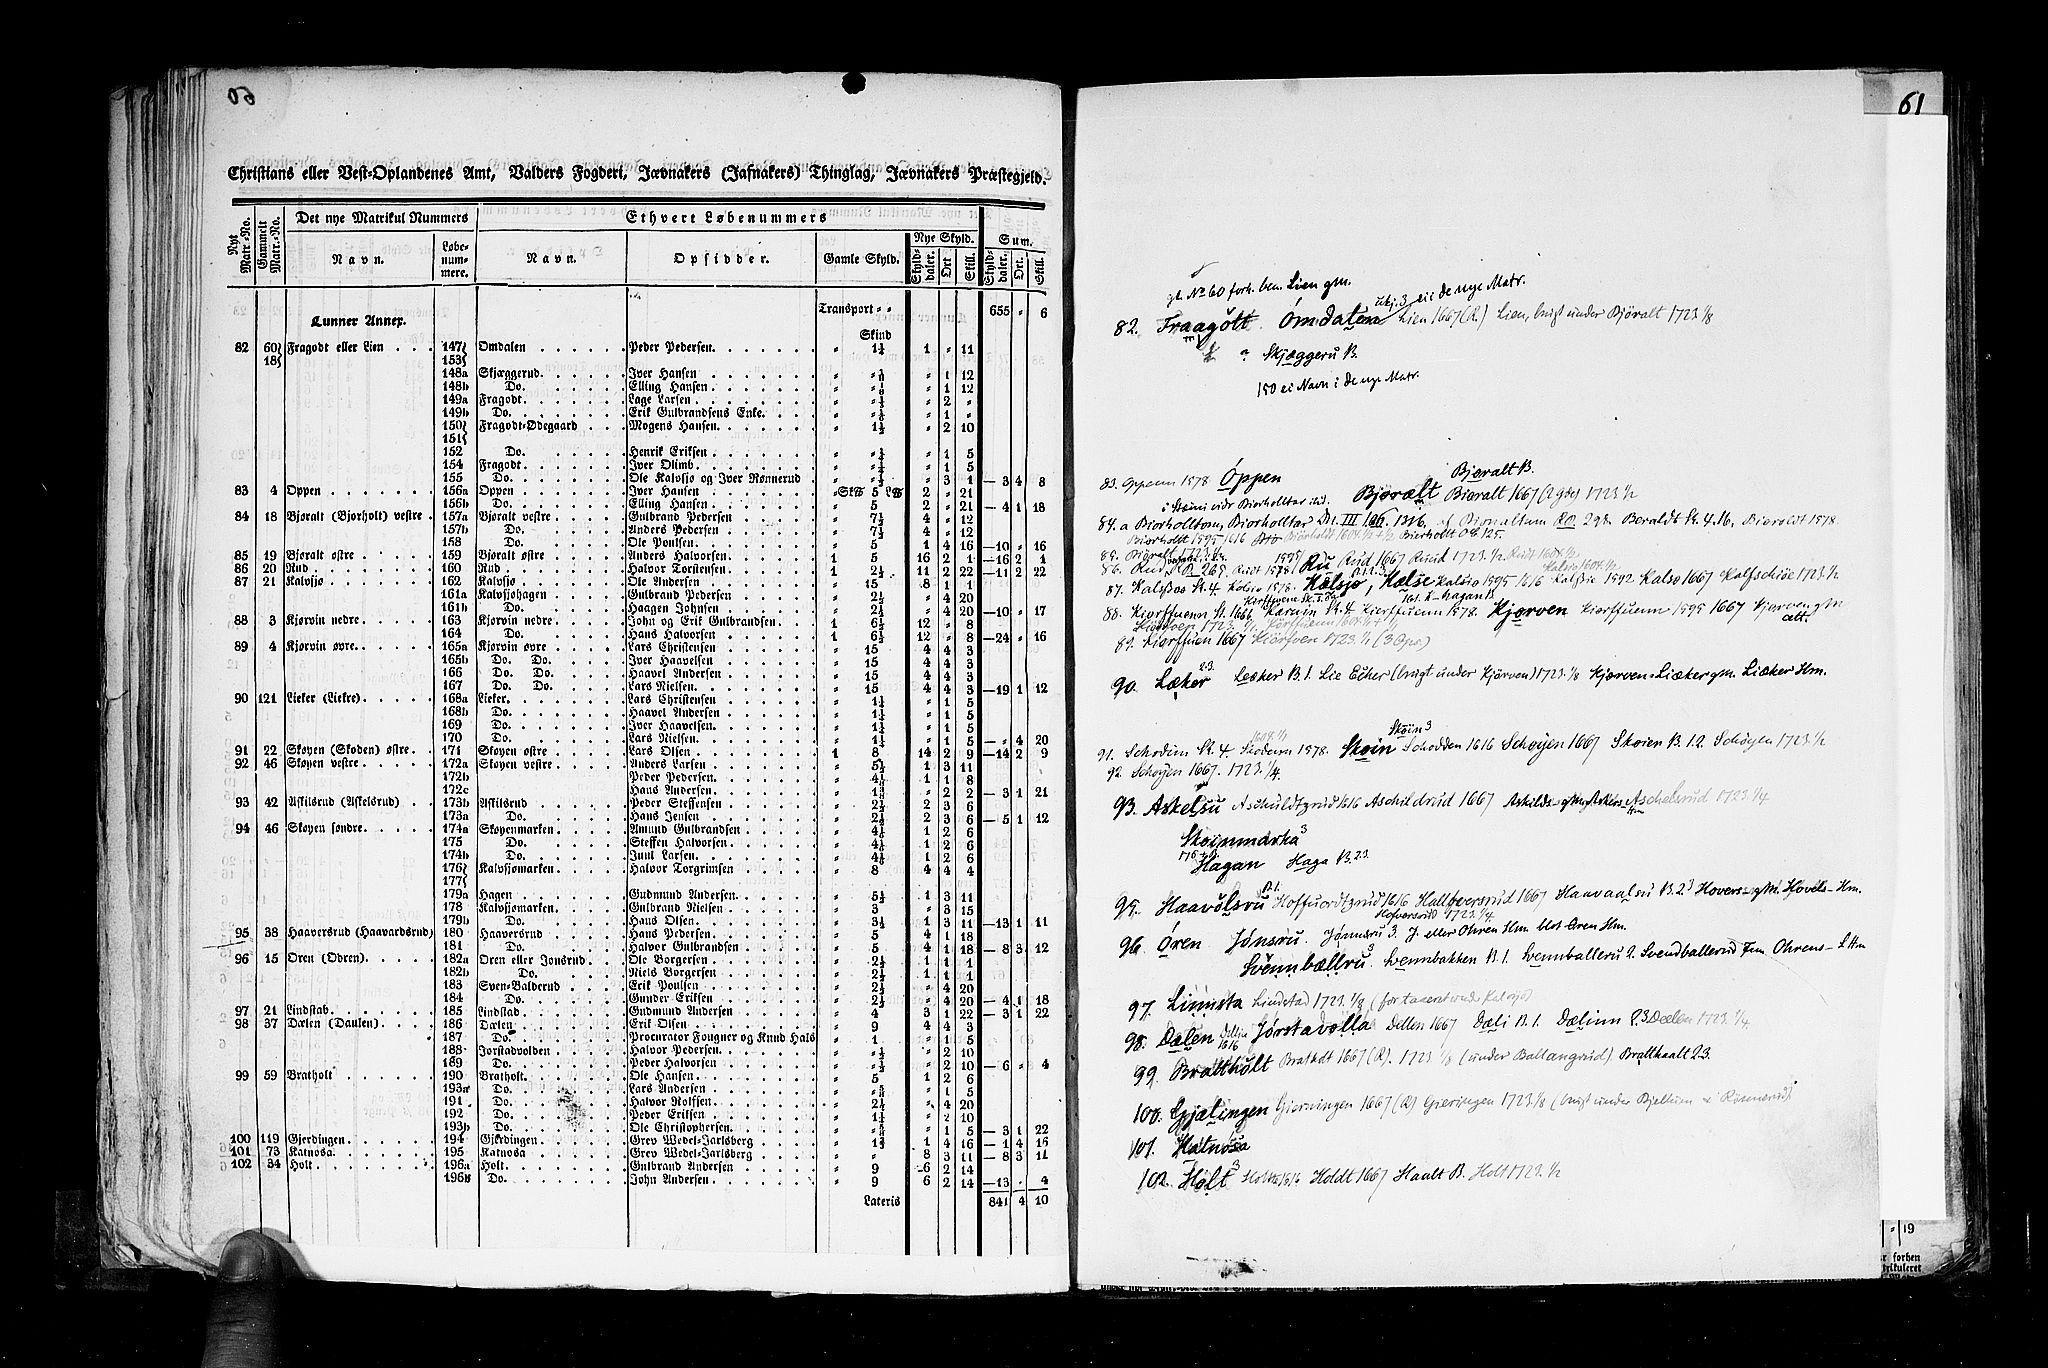 60
Christians eller Vest-Oplandenes Amt, Valders Fogderi, Jævnakers (Jafnakers) Thinglag, Jævnakers Præstegjeld.
Nyt Matr.-No. Gammelt Matr.-No. Det nye Matrikul Nummers Ethvert Løbenummers
Navn. Løbenummere. Navn. Opsidder. Gamle Skyld. Nye Skyld. Sum.
Skylddaler. Ort. Skill. Skylddaler. Ort. Skill.
Transport " " 655 " 6
Lunner Annex.
Skind
82 60 Fragodt eller Lien 147 Omdalen Peder Pedersen " 1¼ 1 " 11
18 153
148a Skjæggerud Iver Hansen " " 1 12
148b Do. Elling Hansen " " 1 12
149a Fragodt Lage Larsen " " 2 "
149b Do. Erik Gulbrandsens Enke " " 1 "
150 Fragodt-Ødegaard Mogens Hansen " " 2 10
151
152 Do. Henrik Eriksen " " 1 5
154 Fragodt Iver Olimb " " 1 5
155 Do. Ole Kalvsjø og Iver Rønnerud " " 3 1 — 3 4 8
83 4 Oppen 156a Oppen Iver Hansen 5 2 " 21
156b Do. Elling Hansen " 5 2 " 21 — 4 1 18
84 18 Bjøralt (Bjorholt) vestre 157a Bjøralt vestre Gulbrand Pedersen " 7½ 4 " 12
157b Do. Anders Pedersen " 7½ 4 " 12
158 Do. Ole Poulsen " 5 1 4 16 —10 " 16
85 19 Bjøralt østre 159 Bjøralt østre Anders Halvorsen 1 5 16 2 1 —16 2 1
86 20 Rud 160 Rud Halvor Torstensen 1 2½ 11 2 22 —11 2 22
87 21 Kalvsjø 162 Kalvsjø Ole Andersen " 15 8 1 1
161a Kalvsjøhagen Gulbrand Pedersen " 2½ " 4 20
161b Do. Haagen Johnsen " 2½ " 4 20 —10 " 17
88 3 Kjørvin nedre 163 Kjørvin nedre John og Erik Gulbrandsen 1 6½ 12 " 8
164 Do. Hans Halvorsen 1 6½ 12 " 8 —24 " 16
89 4 Kjørvin øvre 165a Kjørvin øvre Lars Christensen " 15 4 4 3
165b Do. Do. Iver Haavelsen " 15 4 4 3
166 Do. Do. Haavel Andersen " 15 4 4 3
167 Do. Do. Lars Nielsen " 15 4 4 3 —19 1 12
90 121 Lieker (Liekre) 168a Lieker Lars Christensen " 1¼ " 1 5
168b Do. Haavel Andersen " 1¼ " 1 5
169 Do. Iver Haavelsen " 1¼ " 1 5
170 Do. Lars Nielsen " 1¼ " 1 5 — " 4 20
91 22 Skøyen (Skoden) østre 171 Skøyen østre Lars Olsen 1 8 14 2 9 —14 2 9
92 46 Skøyen vestre 172a Skøyen vestre Anders Larsen " 5¼ 1 3 11
172b Peder Pedersen " 4½ 1 1 8
172c Hans Andersen " " 2 2 — 3 1 21
93 42 Askilsrud (Askelsrud) 173b Askilsrud Peder Steffensen " 2½ 2 3 6
173a Do. Hans Jensen " 2½ 2 3 6 — 5 1 12
94 46 Skøyen søndre 174a Skøyenmarken Amund Gulbrandsen " 1 2 6
175 Do. Steffen Halvorsen " 1 2 6
174b Do. Juul Larsen " 1 2 6
176 Kalvsjømarken Halvor Torgrimsen " 8 4 4 4
177
179a Hagen Gudmund Andersen " 1 3 11
178 Kalvsjømarken Gulbrand Nielsen " 3 " 3 15
179b Do. Hans Olsen " 3¼ 1 3 11 —13 1 11
95 38 Haaversrud (Haavardsrud) 180 Haaversrud Hans Pedersen " 5 4 1 18
181 Do. Halvor Gulbrandsen " 5 4 1 18 — 8 3 12
96 15 Oren (Odren) 182a Oren eller Jonsrud Ole Borgersen " 2½ 1 1 1
182b Do. Niels Borgersen " 2½ 1 1 1
183 Sven-Balderud Erik Poulsen " 2½ " 4 20
184 Do. Gunder Eriksen " 2½ " 4 20 — 4 1 18
97 21 Lindstad 185 Lindstad Gudmund Andersen " 4 3 1 22 — 3 1 22
98 37 Dælen (Daulen) 186 Dælen Erik Olsen " 9 4 4 3
187 Do. Procurator Fougner og Knud Hals " 1 " 1 5
188 Jorstadvolden Halvor Pedersen " " 2 10
189 Do. Peder Halvorsen " " 2 10 — 6 " 4
99 59 Bratholt 190 Bratholt Ole Hansen " 5 1 2 6
193a Do. Lars Andersen " " 1 5
191 Do. Halvor Rolfsen " 2½ " 4 20
192 Do. Peder Eriksen " " 2 10
193b Do. Ole Christophersen " " 1 5 — 3 1 22
100 119 Gjerdingen 194 Gjerdingen Grev Wedel-Jarlsberg " 1 4 16 — 1 4 16
101 73 Katnosa 195 Katnosa Grev Wedel-Jarlsberg " " 8 3 11 — 8 3 11
102 34 Holt 196a Holt Gulbrand Andersen " 9 6 2 14
196b Do. John Andersen " 9 6 2 14 —13 " 4
Lateris 841 4 10
61
gl. No 60 forh. ben. Lien gm.
ei i de nye Matr.
82. Fraagøtt. Ómdalen Lien 1667 (R.) Lien, brugt under Bjøralt 1723 1/8
Skjæggeru B.
150 ei Navn i de nye Matr.
Bjøralt B.
83. Oppenn 1578 Óppen
Bjøralt Biøralt 1667 (2 gde) 1723 1/2
84. a Biorholltom, Biorholltar Dn. III 106. 1316. af Biornaltum R.B. 298. Beraldt St. 4. 16. Bieroldt 1578.
Biørholtt 1595 1616 Biørholdt 1604 1/1 + 1/2 Bierholtt O.E. 125.
85. Bjøralt 1723 1/2
86. Rud R.B. 269. Rudt 1578 1595 Ru Rud 1667 Ruud 1723 1/2 Rudt 1604 1/2
87. Kalfsos St. 4. Kolsio 1578. Kalsjø, Kalse Kalsio 1595 1616 Kalssie 1592 Kalsø 1667 Kalfschiøe 1723 1/2
88. Kiorffuenn St. 166 Karuin St. 4 Kierffuenn 1578. Kjørven Kiorffuenn 1595 1667 Kjørven gm alt.
Kiørven 1723 1/1
89. Kiørffuen 1667 Kiørfven 1723 1/1 (3 Opss.)
90. Læker 2.3. Leøker B.1. Lie Echer (brugt under Kjørven) 1723 1/8 Kjørven-Liæker gm. Liæker Hm.
Skøin 3
91. Schodinn St. 4. Skodenn 1578. Skøin Schodden 1616 Schøyen 1667 Skøien B. 1.2. Schøyen 1723 1/2
92. Schøyen 1667. 1723. 1/4.
93. Askelsu Aschuldtzrud 1616 Aschildrud 1667 Aschelsrud 1723 1/4
Skøinmarka 3
Hagan Haga B. 2.3.
95. Haavølsru B.1. Hoffuordtzrud 1616 Halluersrud 1667 Haavaalsru B. 2.3 Hovers- gm. Hovels- Hm.
Hofversrud 1723. 1/4.
96. Óren Jónsru. Jonnsru 3. J. eller Ohren Hm blot Oren Hm.
Svennbællru 3. Svennbakken B. 1. Svennballeru 2. Svendballerud Fm. Ohrens- L Hm
97. Linnsta Lindstad 1723. 1/8 (før taxeret under Kalvsjø)
98. Dælen Dellen 1616 Jórstavølla Dellen 1667 Dæli B. 1. Dælinn 2.3 Dælen 1723 1/4
99. Brattholt Bratholt 1667 (R). 1723 1/8 (under Ballangrud) Bratthaalt 2.3.
100. Gjælingen Gierningen 1667 (R) Gieringen 1723. 1/8 (brugt under Bjellum og Rønnerud)
101. Katnosa
102. Hølt 3 Holtt 1616 Holdt 1667 Haalt B. Holt 1723. 1/2
" 19